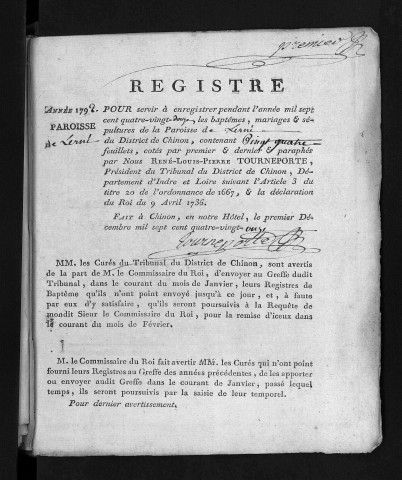 premier
REGISTRE
ANNÉE 1792.
PAROISSE
de Lerné
POUR servir à enregistrer pendant l'année mil sept
cent quatre-vingt-douze, les baptêmes, mariages & sé-
pultures de la Paroisse de Lerné
du District de Chinon, contenant Vingt quatre
feuillets, cotés par premier & dernier & paraphés
par Nous RENÉ-LOUIS-PIERRE TOURNEPORTE,
Président du Tribunal du District de Chinon, Dé-
partement d'Indre et Loire suivant l'Article 3 du
titre 20 de l'ordonnance de 1667, & la déclaration
du Roi du 9 Avril 1736.
FAIT à Chinon, en notre Hôtel, le premier Dé-
cembre mil sept cent quatre-vingt-onze
Tourneporte
MM. les Curés du Tribunal du District de Chinon, sont avertis
de la part de M. le Commissaire du Roi, d'envoyer au Greffe dudit
Tribunal, dans le courant du mois de Janvier, leurs Registres de
Baptême qu'ils n'ont point envoyé jusqu'à ce jour, et, à faute
par eux d'y satisfaire, qu'ils seront poursuivis à la Requête de
mondit Sieur le Commissaire du Roi, pour la remise d'iceux dans
le courant du mois de Février.
M. le Commissaire du Roi fait avertir MM. les Curés qui n'ont point
fourni leurs Registres au Greffe des années précédentes, de les apporter
ou envoyer audit Greffe dans le courant de Janvier, passé lequel
temps, ils seront poursuivis par la saisie de leur temporel.
Pour dernier avertissement.